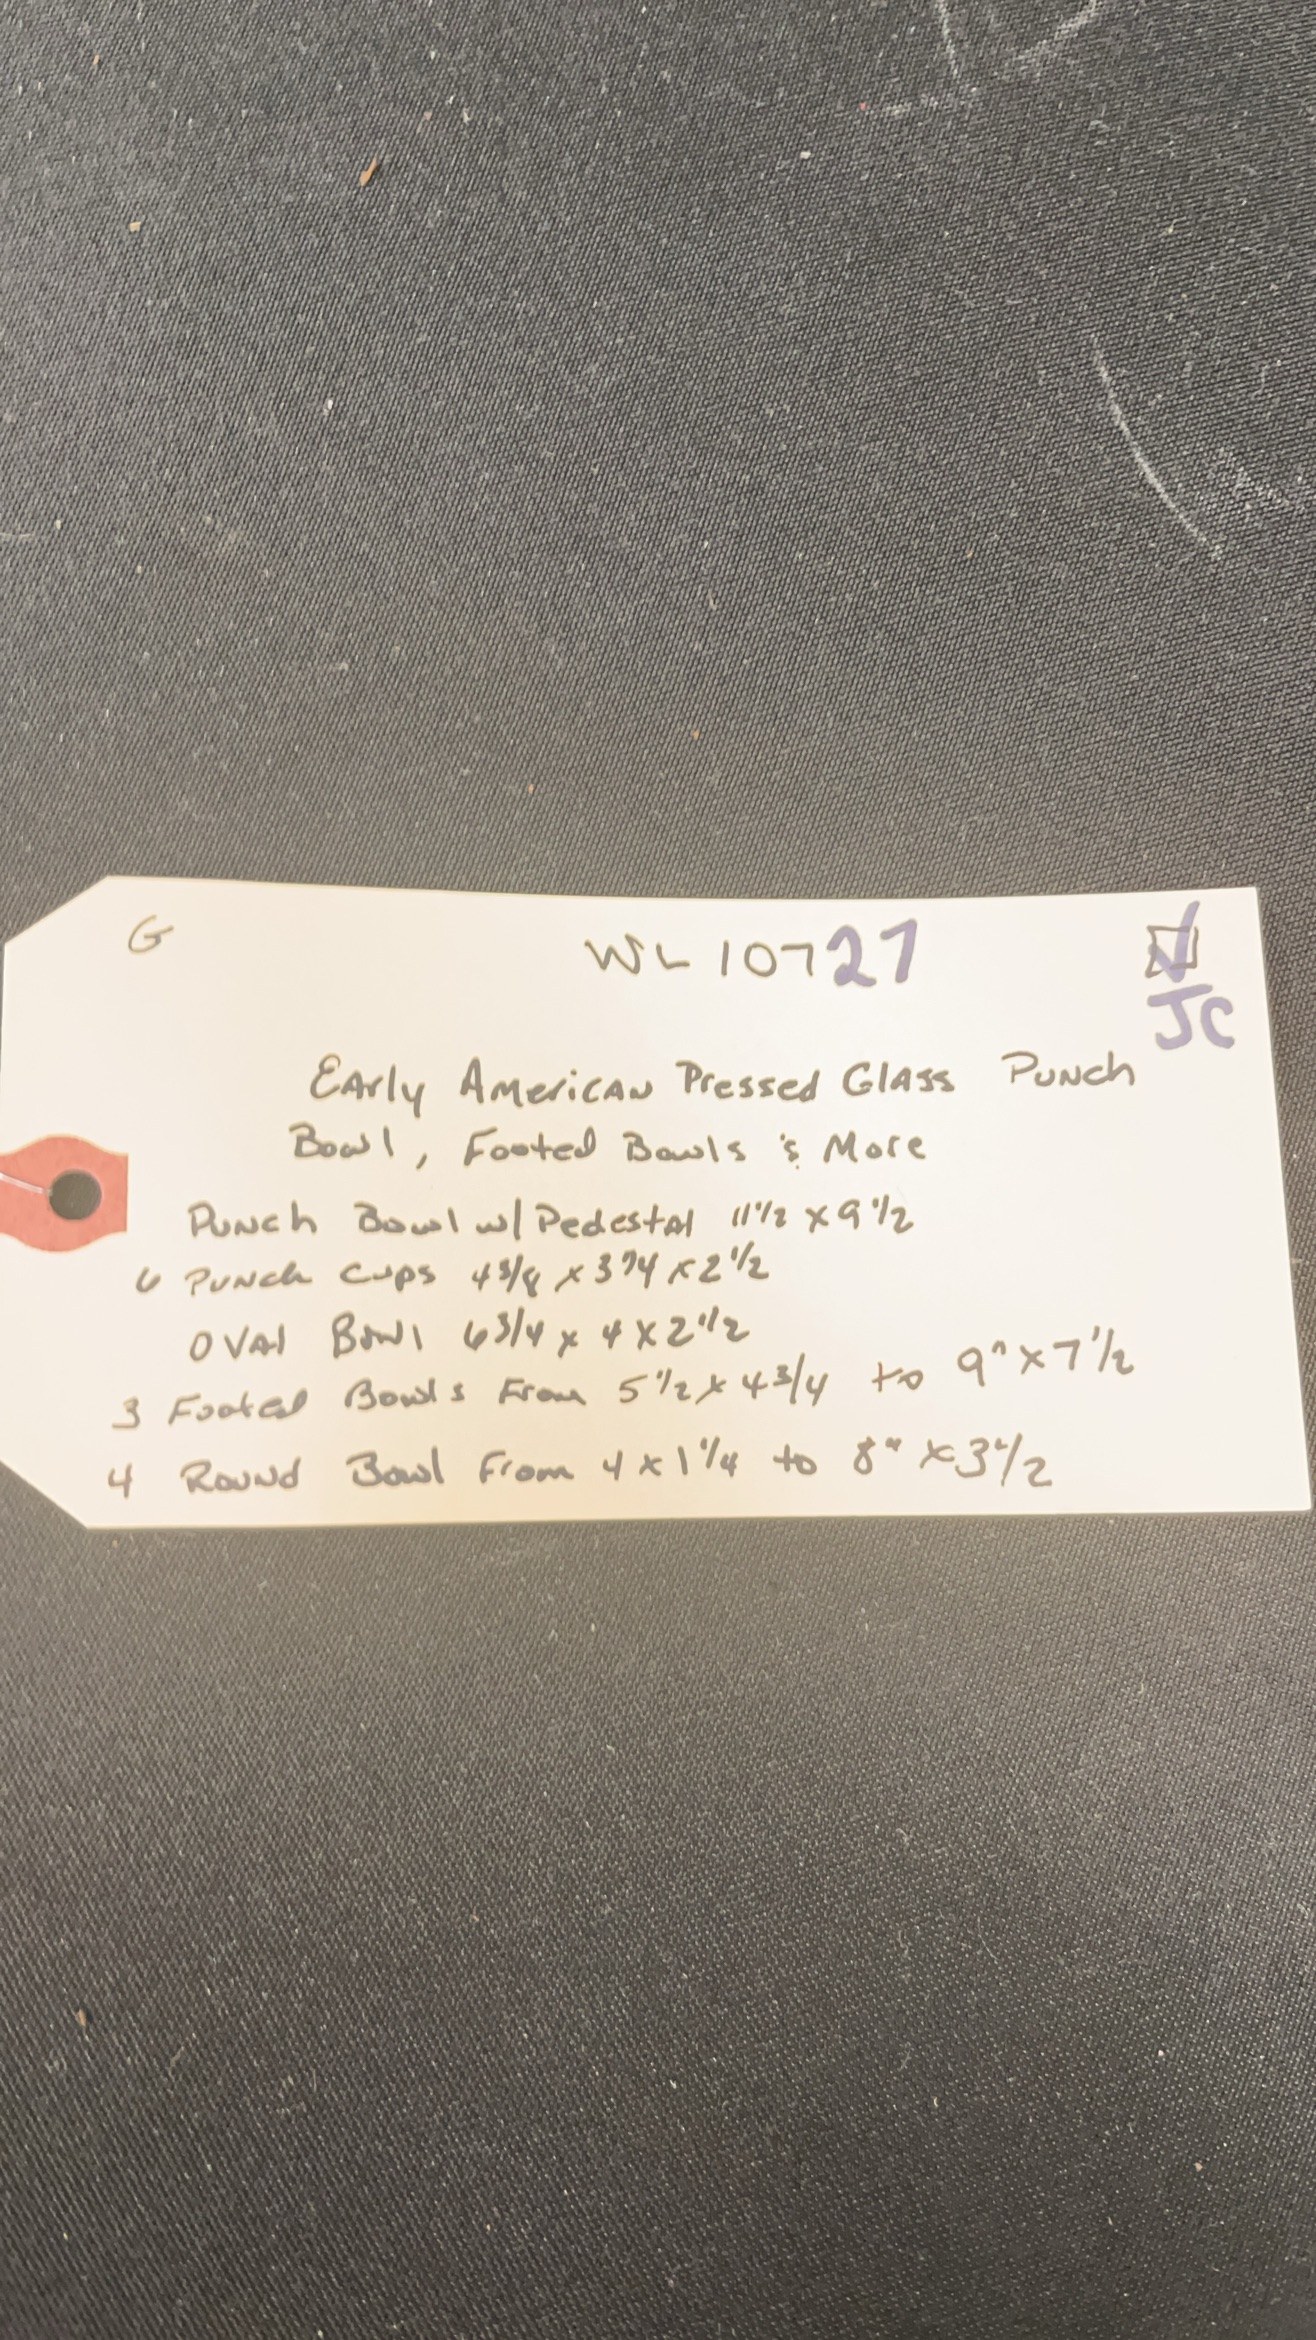 G WL 10727
JC
Early American Pressed Glass Punch
Bowl, Footed Bowls & More
Punch Bowl w/ Pedestal 11 1/2 x 9 1/2
6 Punch Cups 4 3/8 x 3 3/4 x 2 1/2
Oval Bowl 6 3/4 x 4 x 2 1/2
3 Footed Bowls From 5 1/2 x 4 3/4 to 9" x 7 1/2
4 Round Bowl From 4 x 1 1/4 to 8" x 3 1/2